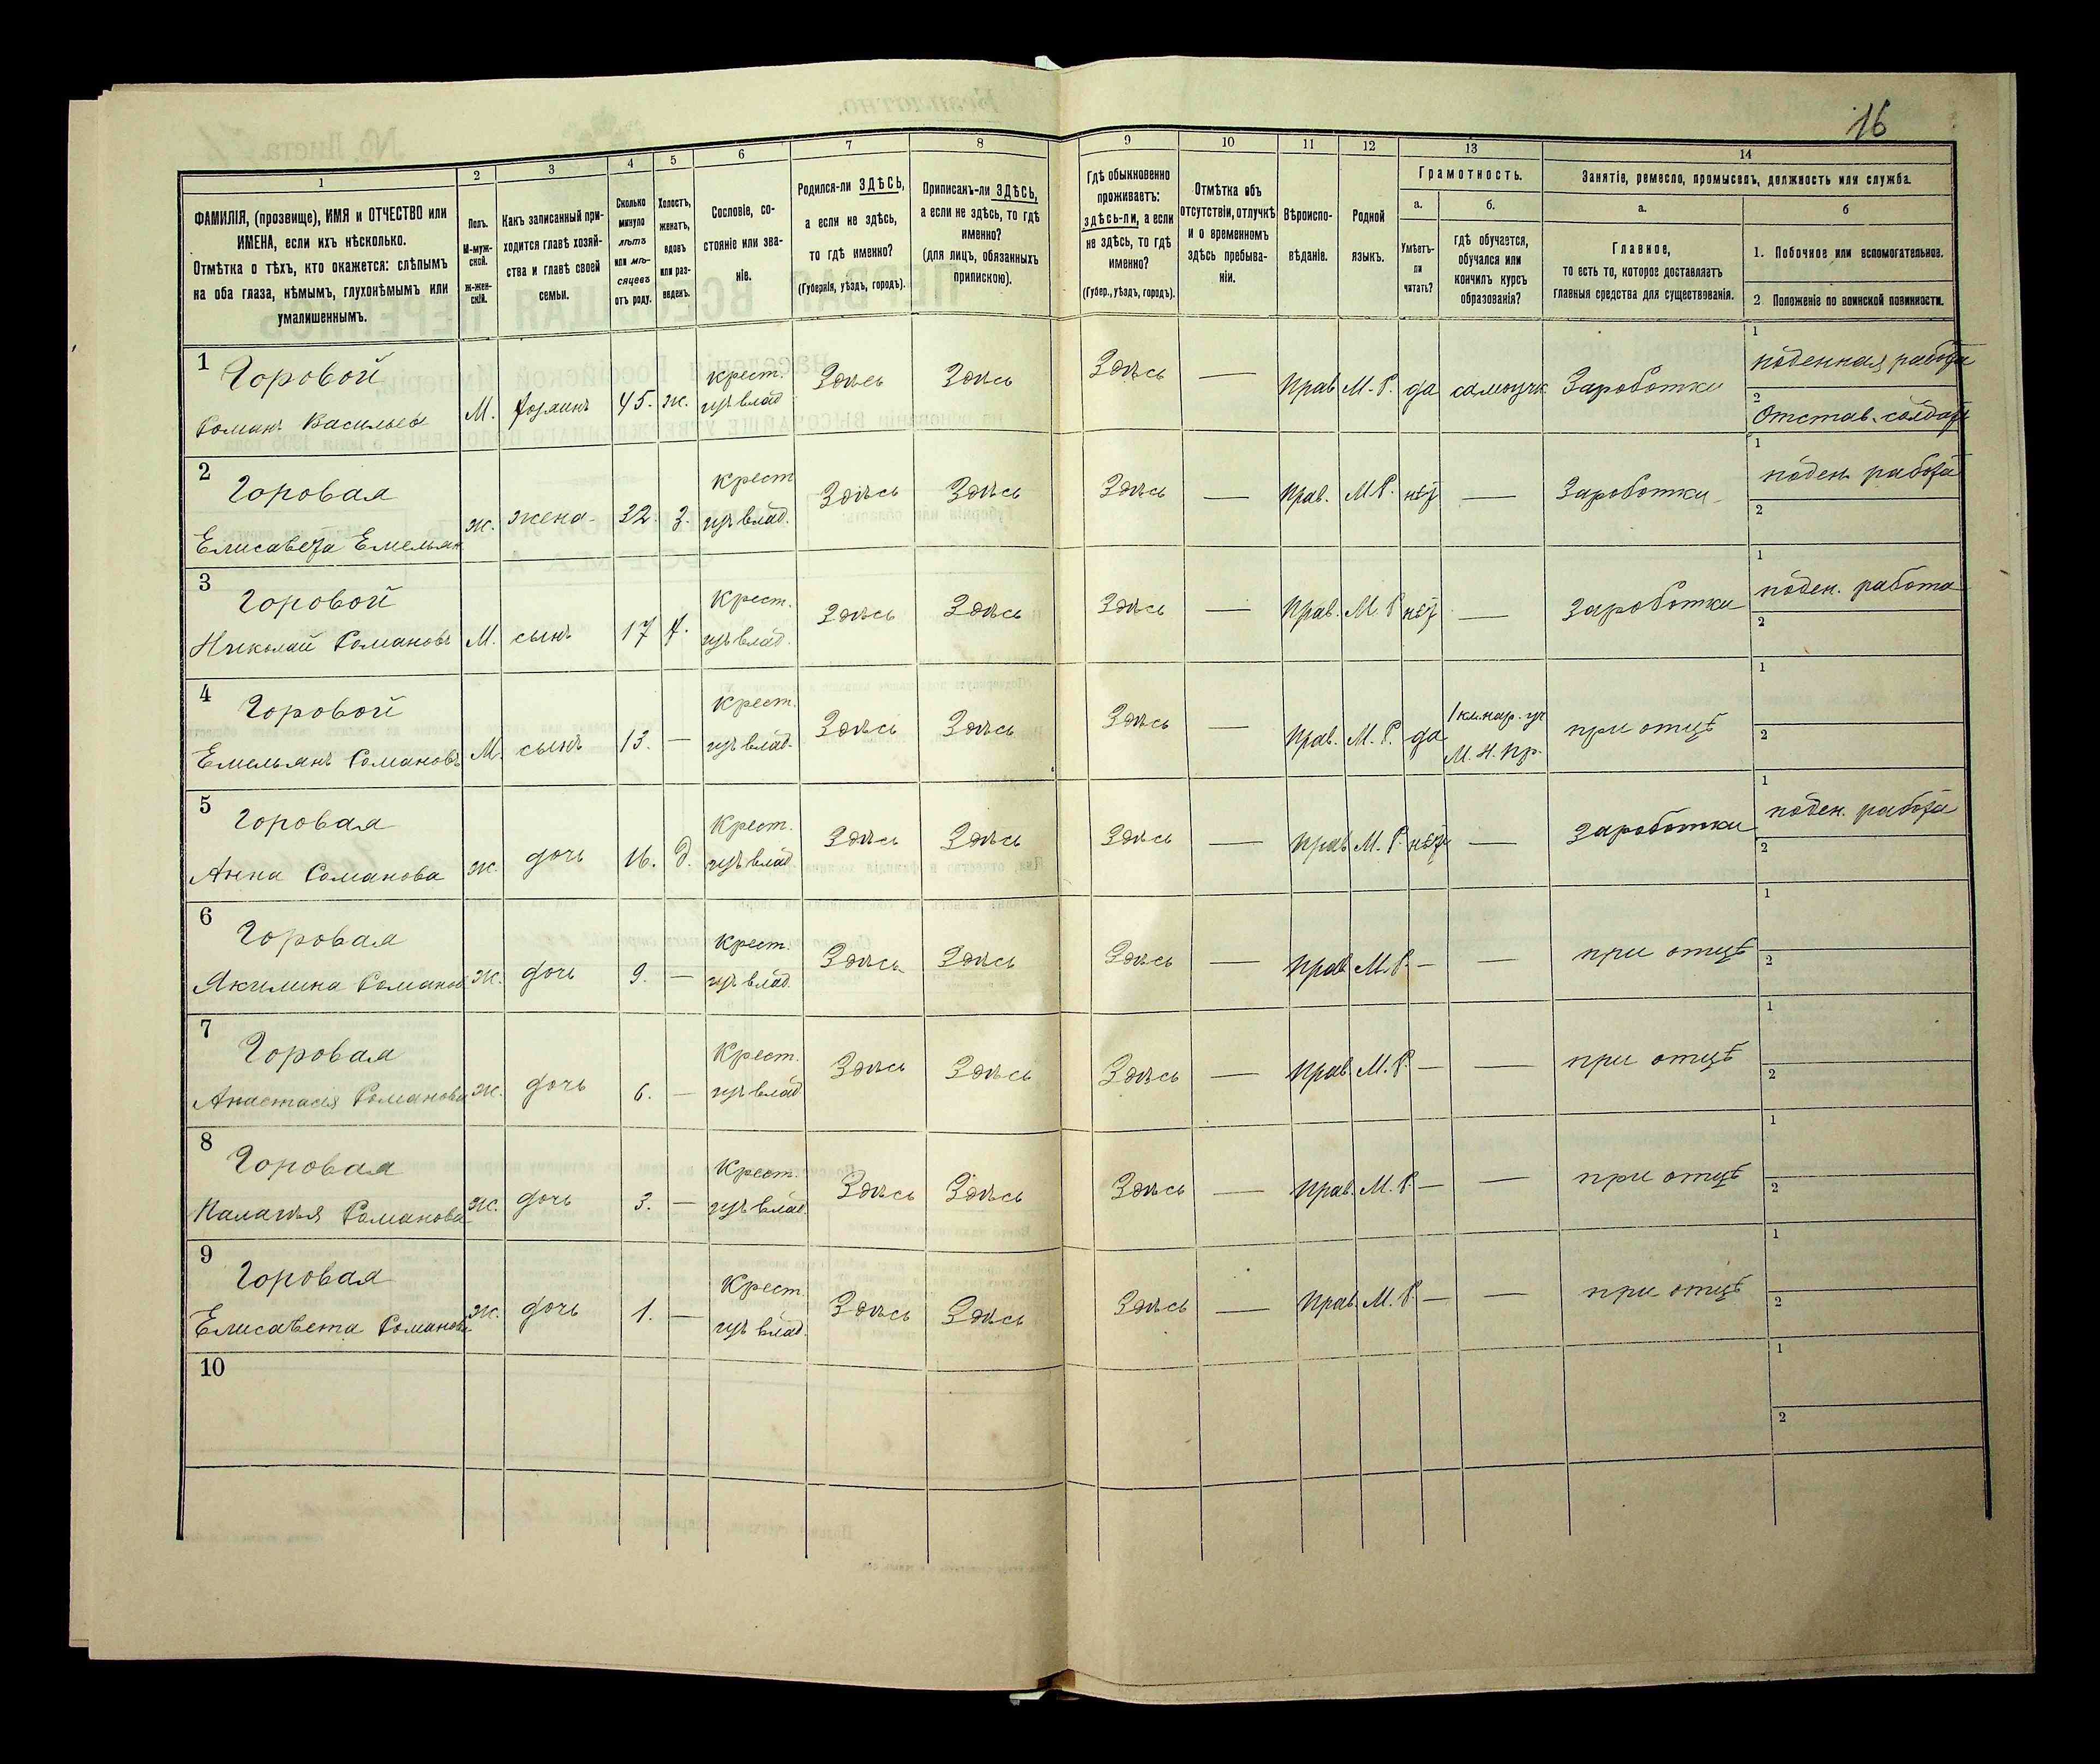 16
1 2 3 4 5 6 7 8 9 10 11 12 13 14
ФАМИЛІЯ, (прозвище), ИМЯ и ОТЧЕСТВО или
ИМЕНА, если ихъ нѣсколько.
Отмѣтка о тѣхъ, кто окажется: слѣпымъ
на оба глаза, нѣмымъ, глухонѣмымъ или
умалишеннымъ.
Полъ.
М-муж-
ской.
ж-жен-
скій.
Какъ записанный при-
ходится главѣ хозяй-
ства и главѣ своей
семьи.
Сколько
минуло
лѣтъ
или мѣ-
сяцевъ
отъ роду.
Холостъ,
женатъ,
вдовъ
или раз-
веденъ.
Сословіе, со-
стояніе или зва-
ніе.
Родился-ли ЗДѢСЬ,
а если не здѣсь,
то гдѣ именно?
(Губернія, уѣздъ, городъ).
Приписанъ-ли ЗДѢСЬ,
а если не здѣсь, то гдѣ
именно?
(для лицъ, обязанныхъ
припискою).
Гдѣ обыкновенно
проживаетъ:
здѣсь-ли, а если
не здѣсь, то гдѣ
именно?
(Губер., уѣздъ, городъ).
Отмѣтка объ
отсутствіи, отлучкѣ
и о временномъ
здѣсь пребыва-
ніи.
Вѣроиспо-
вѣданіе.
Родной
языкъ.
Грамотность.
а.
Умѣетъ-
ли
читать?
б.
гдѣ обучается,
обучался или
кончилъ курсъ
образованія?
Занятіе, ремесло, промыселъ, должность или служба.
а.
Главное,
то есть то, которое доставляетъ
главныя средства для существованія.
б
1. Побочное или вспомогательное.
2 Положеніе по воинской повинности.
1 Горовой крест. Здѣсь Здѣсь Здѣсь — Прав М. Р. да самоучк Заработки 1 поденная работа
Романъ Васильев М. хозяинъ 45. ж. влад 2 Отстав. солдатъ
2 Горовая крест Здѣсь Здѣсь Здѣсь — Прав. М Р. нѣт — Заработки 1 поден. работа
Елисавета Емельян ж. жена 32. з. влад. 2
3 Горовой Крест. Здѣсь Здѣсь Здѣсь — Прав. М. Р нѣт — Заработки 1 поден. работа
Николай Романовъ М. сынъ 17 х. влад. 2
4 Горовой Крест. Здѣсь Здѣсь Здѣсь — Прав. М. Р. да 1 кл. нар. уч при отцѣ 1
Емельянъ Романовъ М. сынъ 13. — влад. М. Н. Пр. 2
5 Горовая Крест. Здѣсь Здѣсь Здѣсь — Прав М. Р. нѣт — Заработки 1 поден. работа
Анна Романова ж. дочь 16. д. влад 2
6 Горовая Крест. Здѣсь Здѣсь Здѣсь — Прав М. Р. — — при отцѣ 1
Акилина Романов ж. дочь 9. — влад. 2
7 Горовая Крест. Здѣсь Здѣсь Здѣсь — Прав. М. Р. — — при отцѣ 1
Анастасія Романова ж. дочь 6. — влад 2
8 Горовая Крест. Здѣсь Здѣсь Здѣсь — Прав. М. Р — — при отцѣ 1
Палагея Романова ж. дочь 3. — влад. 2
9 Горовая Крест. Здѣсь Здѣсь Здѣсь — Прав. М. Р — — при отцѣ 1
Елисавета Романов ж. дочь 1. — влад. 2
10 1
2